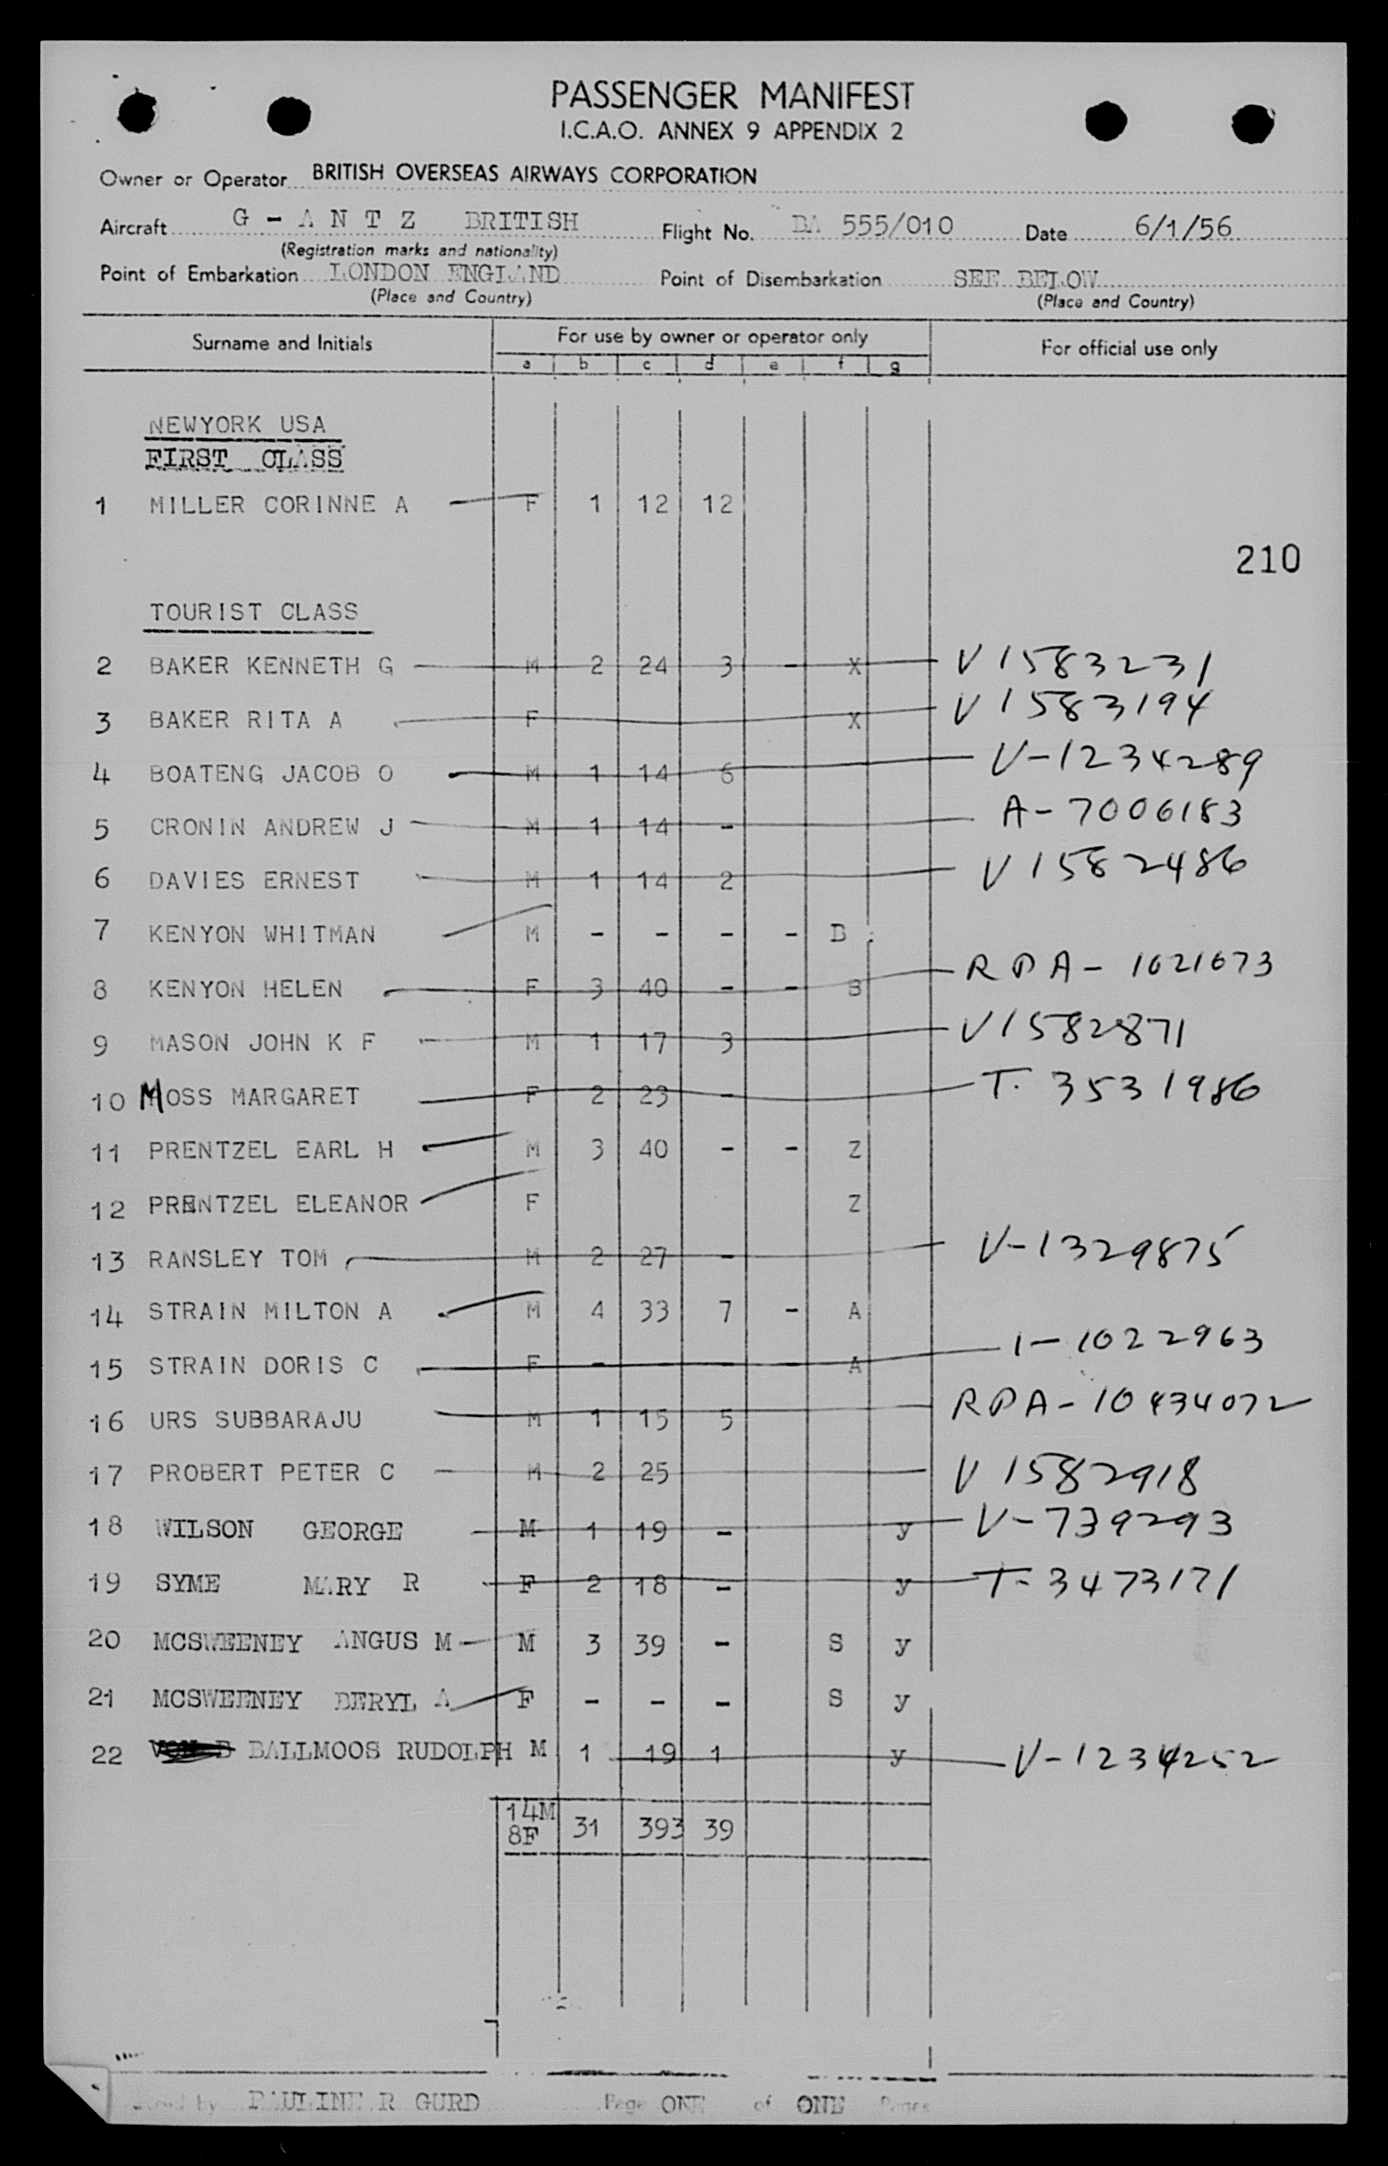 PASSENGER MANIFEST
I.C.A.O. ANNEX 9 APPENDIX 2
Owner or Operator BRITISH OVERSEAS AIRWAYS CORPORATION
Aircraft G - A N T Z BRITISH Flight No. BA 555/010 Date 6/1/56
(Registration marks and nationality)
Point of Embarkation LONDON ENGLAND Point of Disembarkation SEE BELOW
(Place and Country) (Place and Country)
Surname and Initials For use by owner or operator only For official use only
a b c d e f g
NEWYORK USA
FIRST CLASS
1 MILLER CORINNE A F 1 12 12
210
TOURIST CLASS
2 BAKER KENNETH G M 2 24 3 - X V 1583231
3 BAKER RITA A F X V 1583194
4 BOATENG JACOB O M 1 14 6 V-1234289
5 CRONIN ANDREW J M 1 14 - A-7006183
6 DAVIES ERNEST M 1 14 2 V 1582486
7 KENYON WHITMAN M - - - - B
8 KENYON HELEN F 3 40 - - B RPA- 1021073
9 MASON JOHN K F M 1 17 3 V1582871
10 MOSS MARGARET F 2 23 - T. 3531986
11 PRENTZEL EARL H M 3 40 - - Z
12 PRENTZEL ELEANOR F Z
13 RANSLEY TOM M 2 27 - V-1329875
14 STRAIN MILTON A M 4 33 7 - A
15 STRAIN DORIS C F - - - - A 1-1022963
16 URS SUBBARAJU M 1 15 5 RPA-10434072
17 PROBERT PETER C M 2 25 V 1582918
18 WILSON GEORGE M 1 19 - y V-739293
19 SYME MARY R F 2 18 - y T-3473171
20 MCSWEENEY ANGUS M M 3 39 - S y
21 MCSWEENEY BERYL A F - - - S y
22 BALLMOOS RUDOLPH M 1 19 1 y V-1234252
14M
8F 31 393 39
by PAULINE R GURD Page ONE of ONE Pages